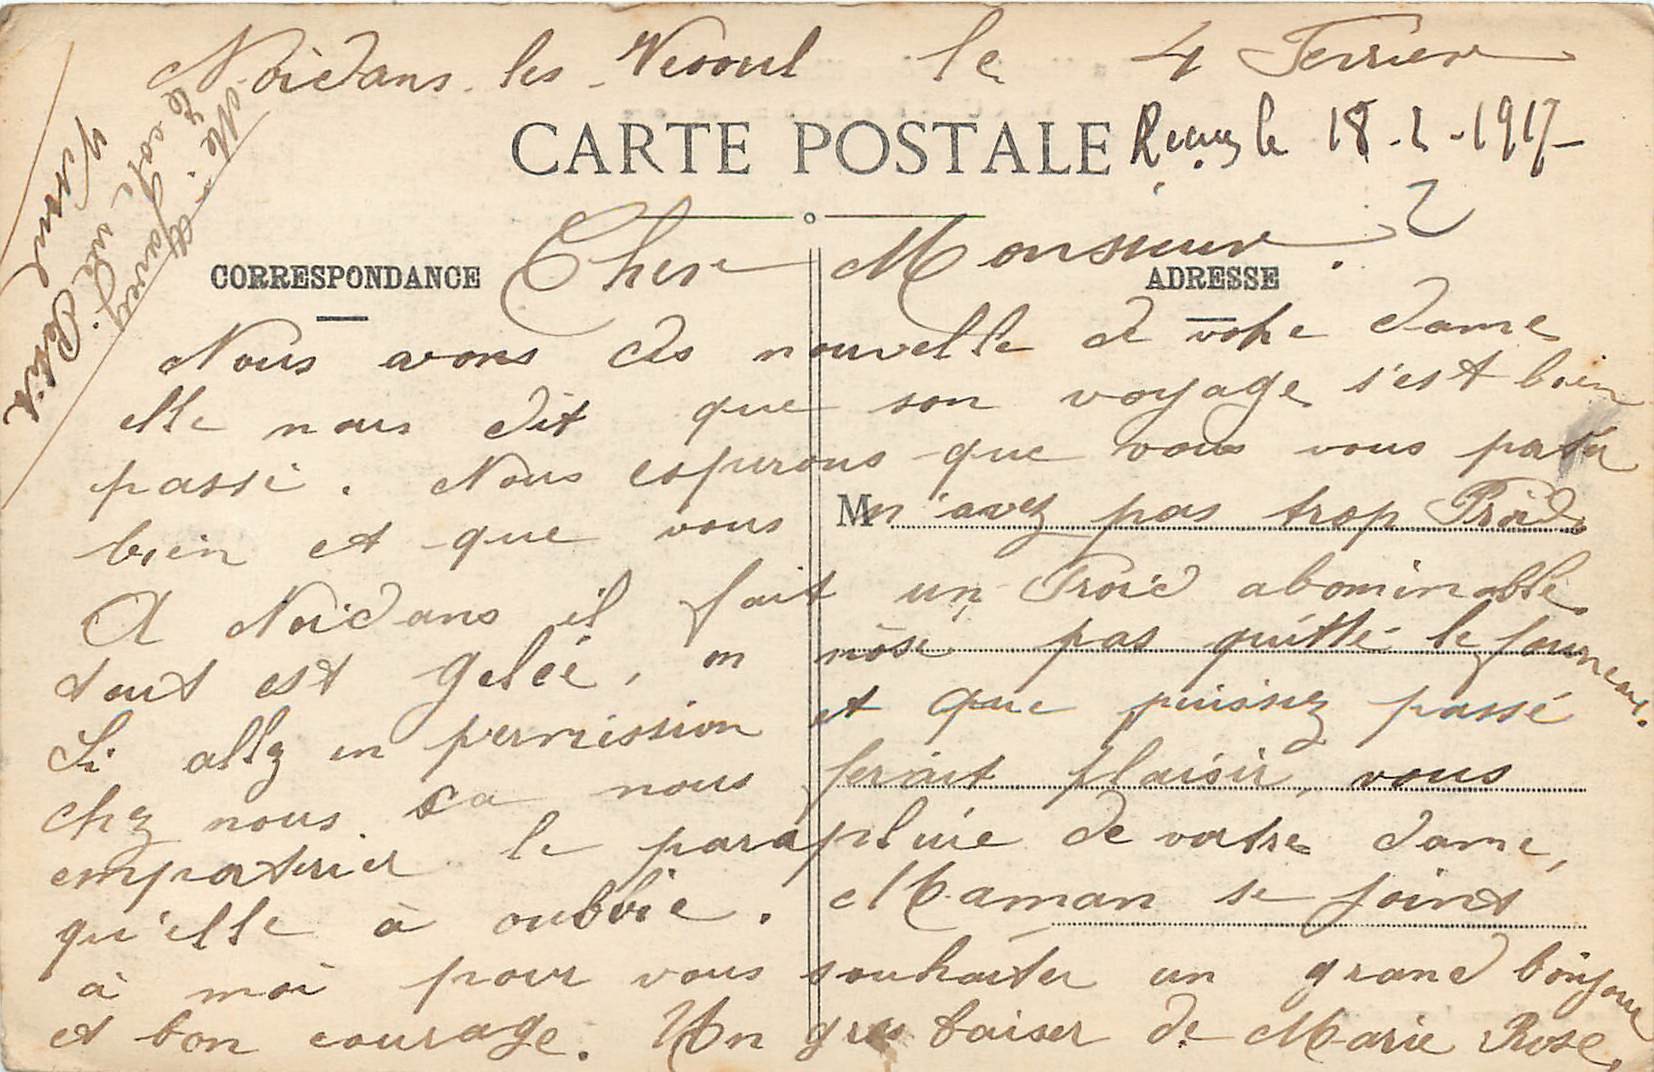 Noidans les Vesoul le 4 Fevrier
CARTE POSTALE
Reçu le 18-2-1917-
Cher Monsieur.
CORRESPONDANCE
ADRESSE
Nous avons des nouvelle de votre dame
elle nous dit que son voyage s'est bien
passé. Nous esperons que vous vous portez
bien et que vous n'avez pas trop Froid.
M
A Noidans il fait un Froid abominable
tout est Gelée, on n'ose pas quitté le fourneau.
Si allez en permission et que puissiez passé
chez nous sa nous ferait plaisir, vous
emporterier le parapluie de votre dame,
qu'elle à oublie. Maman se joint
à moi pour vous souhaiter un grand bonjour
et bon courage. Un gros baiser de Marie Rose.
Vesoul